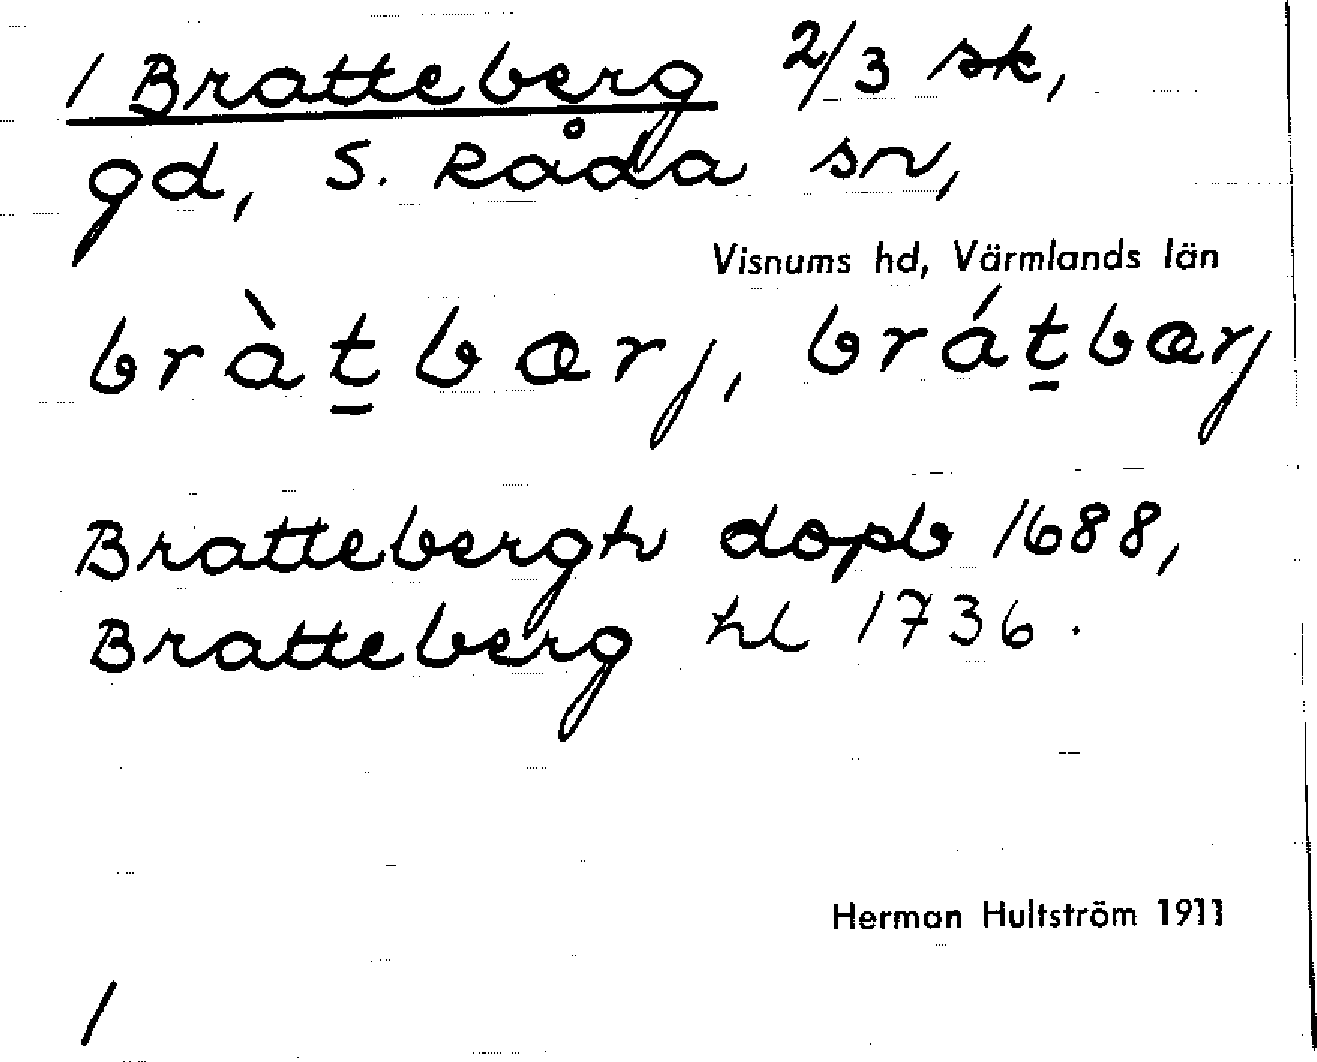 1 Bratteberg 2/3 sk,
gd, S. Råda sn,
Visnums hd, Värmlands län
bràṯbærj, bráṯbærj
Brattebergh dopb 1688,
Bratteberg hl 1736.
Herman Hultström 1911
1